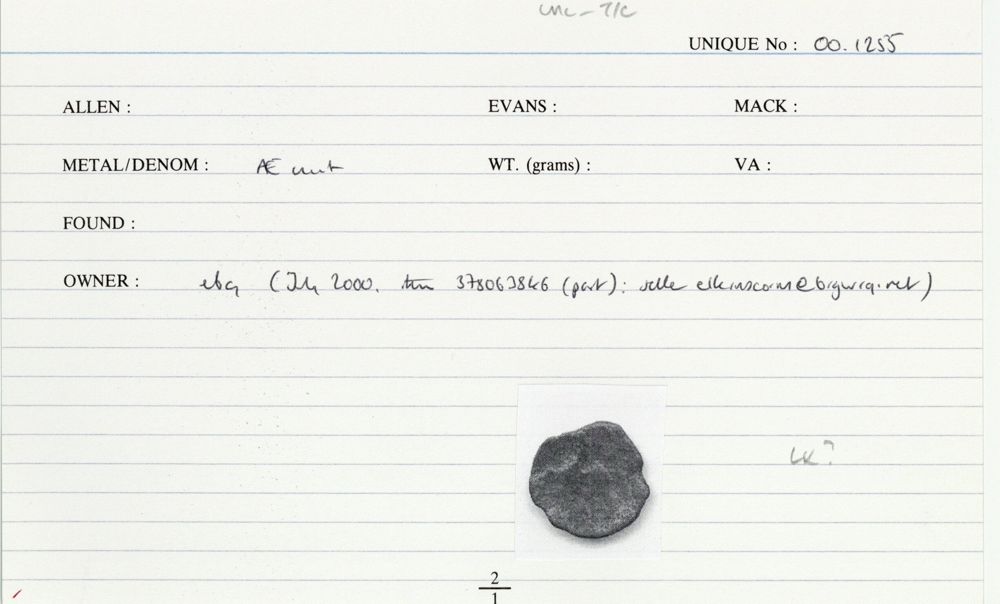 unc - T/C
UNIQUE No : 00.1255
ALLEN : EVANS : MACK :
METAL/DENOM : Æ unit WT. (grams) : VA :
FOUND :
OWNER : ebay (July 2000. item 378063846 (part): seller
UK?
2
1